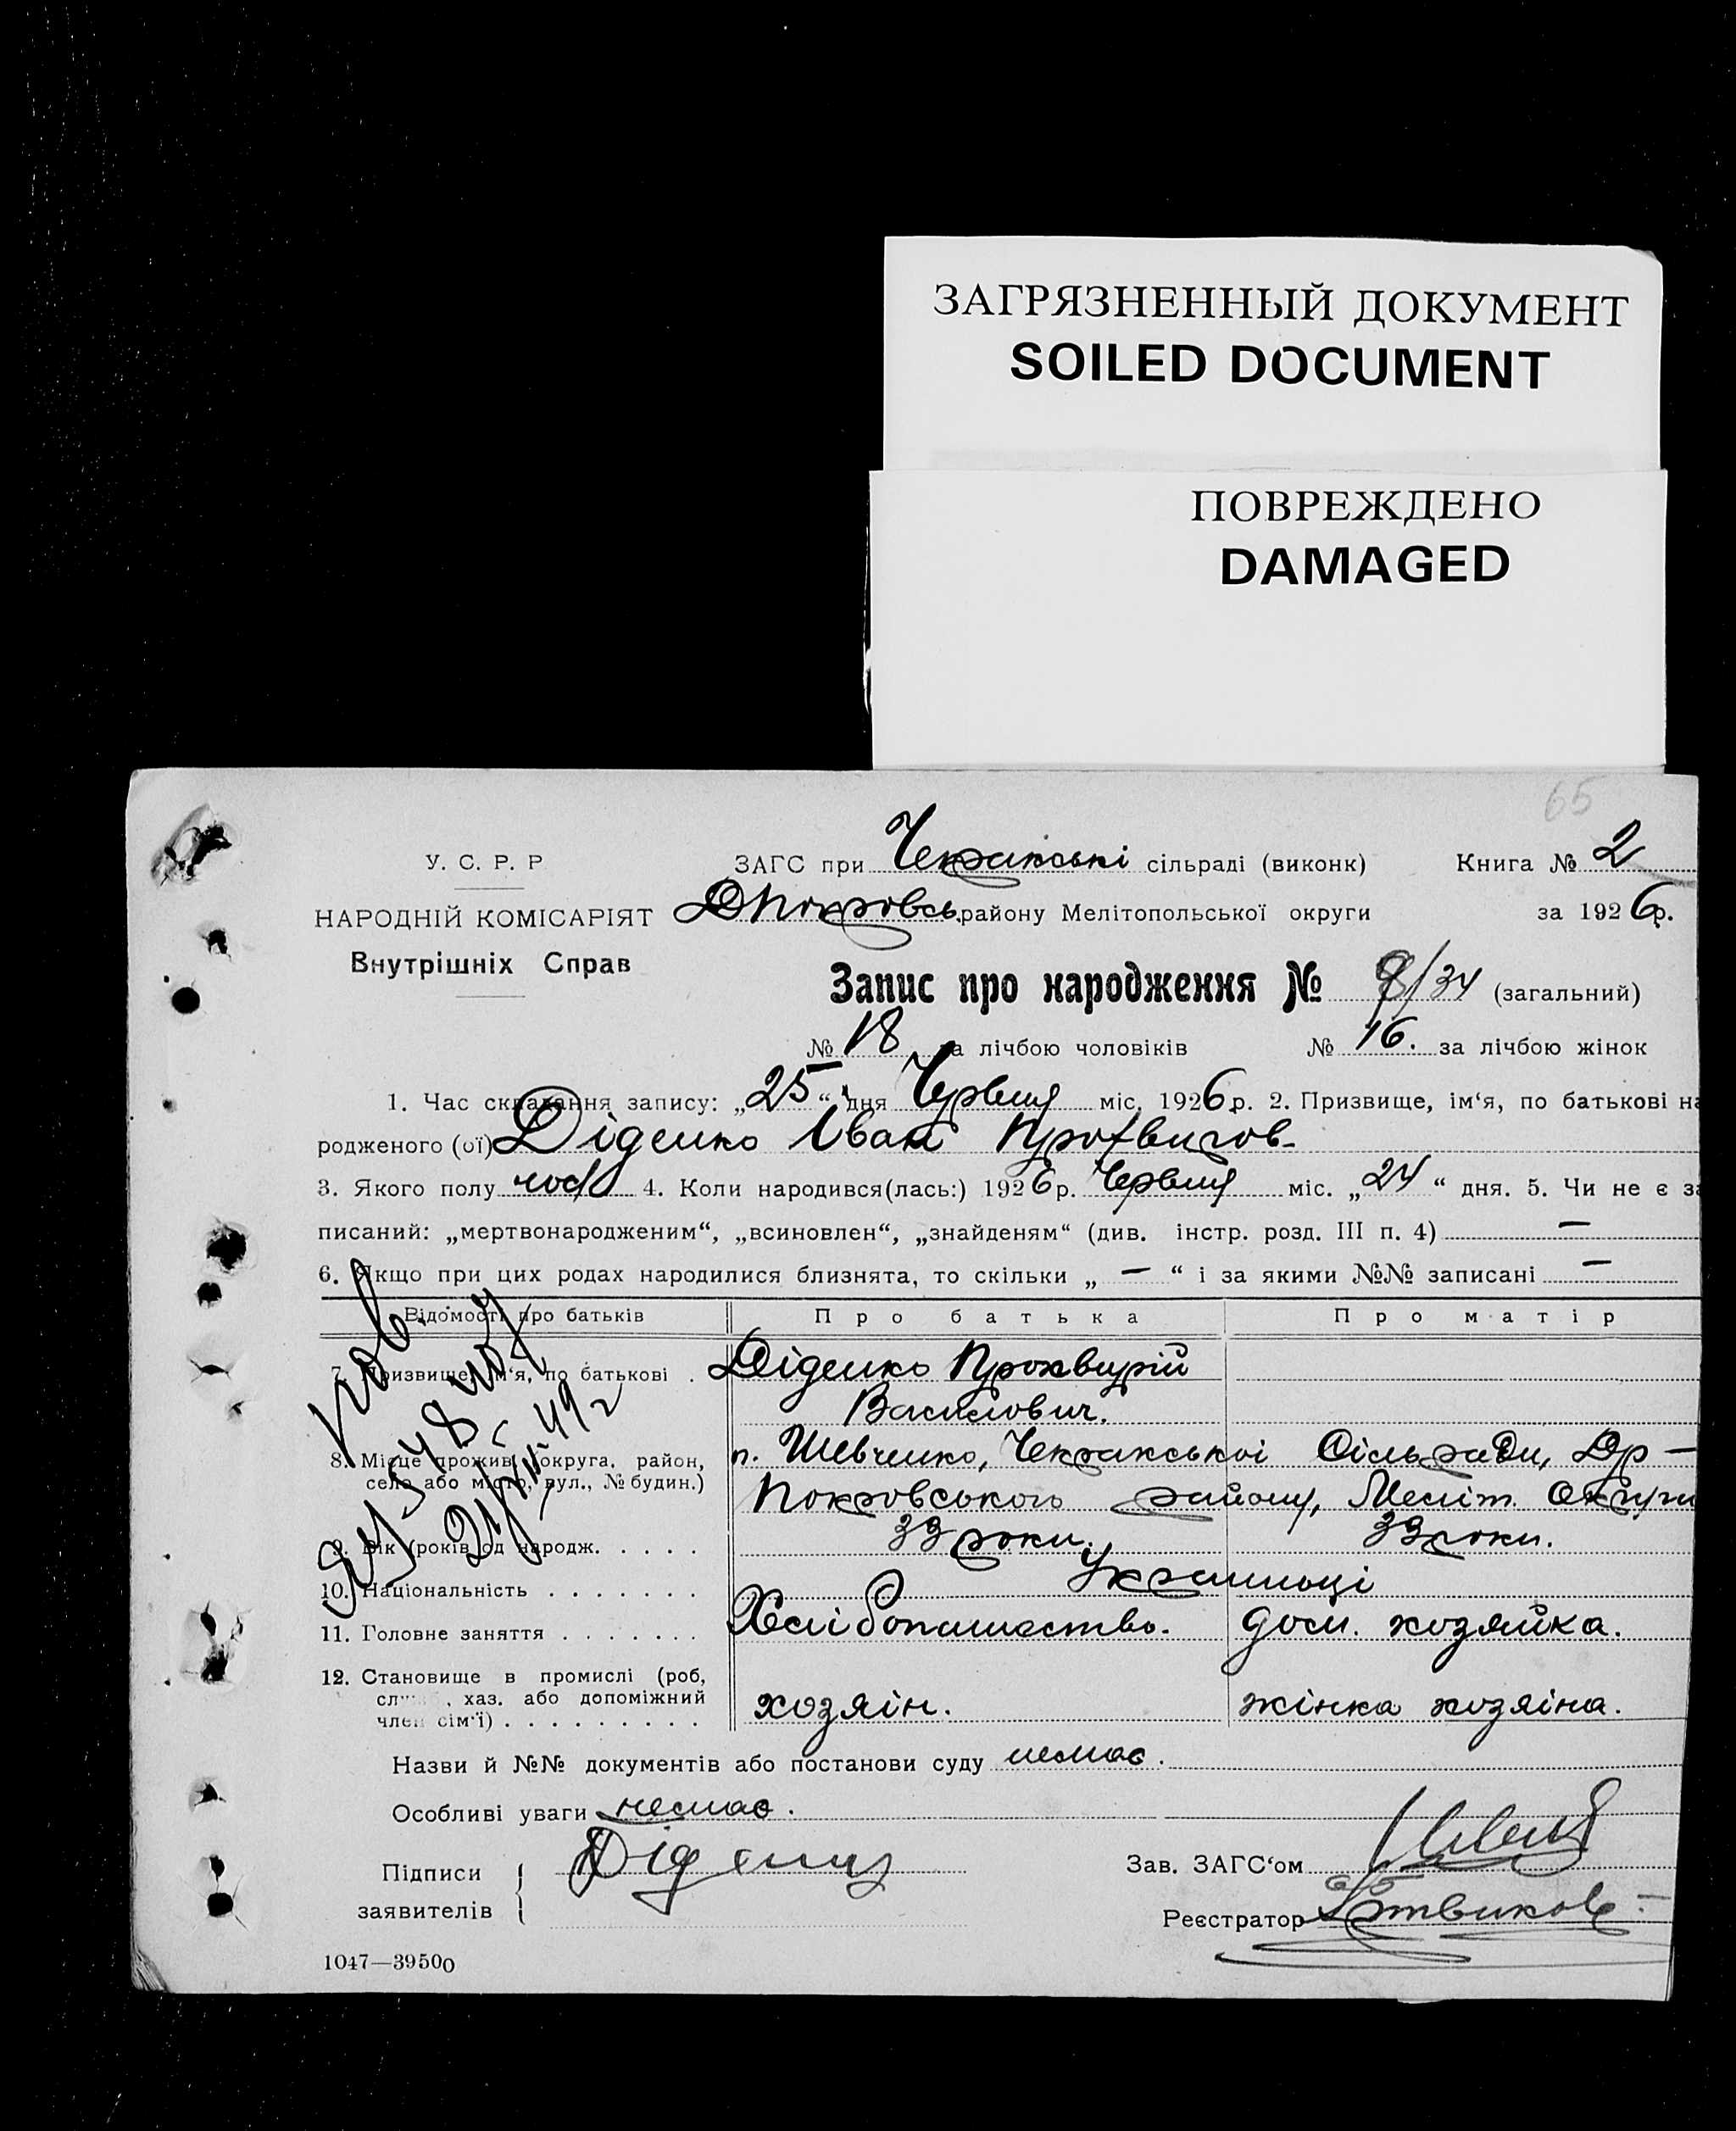 ЗАГРЯЗНЕННЫЙ ДОКУМЕНТ
SOILED DOCUMENT
ПОВРЕЖДЕНО
DAMAGED
65
У. С. Р. Р
НАРОДНІЙ КОМІСАРІЯТ
Внутрішніх Справ
ЗАГС при Чекракські сільраді (виконк) Книга № 2
Дпокровськ. району Мелітопольської округи за 1926р.
Запис про народження № 8/34 (загальний)
№ 18 за лічбою чоловіків № 16. за лічбою жінок
1. Час складання запису: „25“ дня Червня міс. 1926р. 2. Призвище, ім‘я, по батькові на
родженого (ої) Діденко Іван
3. Якого полу 4. Коли народився(лась:) 1926р. Червня міс. „24“ дня. 5. Чи не є за
писаний: „мертвонародженим“, „всиновлен“, „знайденям“ (див. інстр. розд. III п. 4) —
6. Якщо при цих родах народилися близнята, то скільки „ — “ і за якими №№ записані —
Відомості про батьків Про батька Про матір
7. Призвище, ім‘я, по батькові . Діденко Прохвирій
Васильович.
8. Місце прожив. (округа, район, п. Шевченко, Чекракської Сільради, Др —
село або місто, вул., № будин.) Покровського району, Меліт. Округи
9. Вік (років од народж. . . . . 33 роки. 33 роки.
10. Національність . . . . . . . Українці
11. Головне заняття . . . . . . . Хлібопашество. дом. хозяйка.
12. Становище в промислі (роб,
служ., хаз. або допоміжний хозяін. жінка хозяіна.
член сім‘ї) . . . . . . . . .
Назви й №№ документів або постанови суду немає.
Особливі уваги немає.
Підписи Діденко Зав. ЗАГС‘ом
заявителів Реєстратор
1047—39500